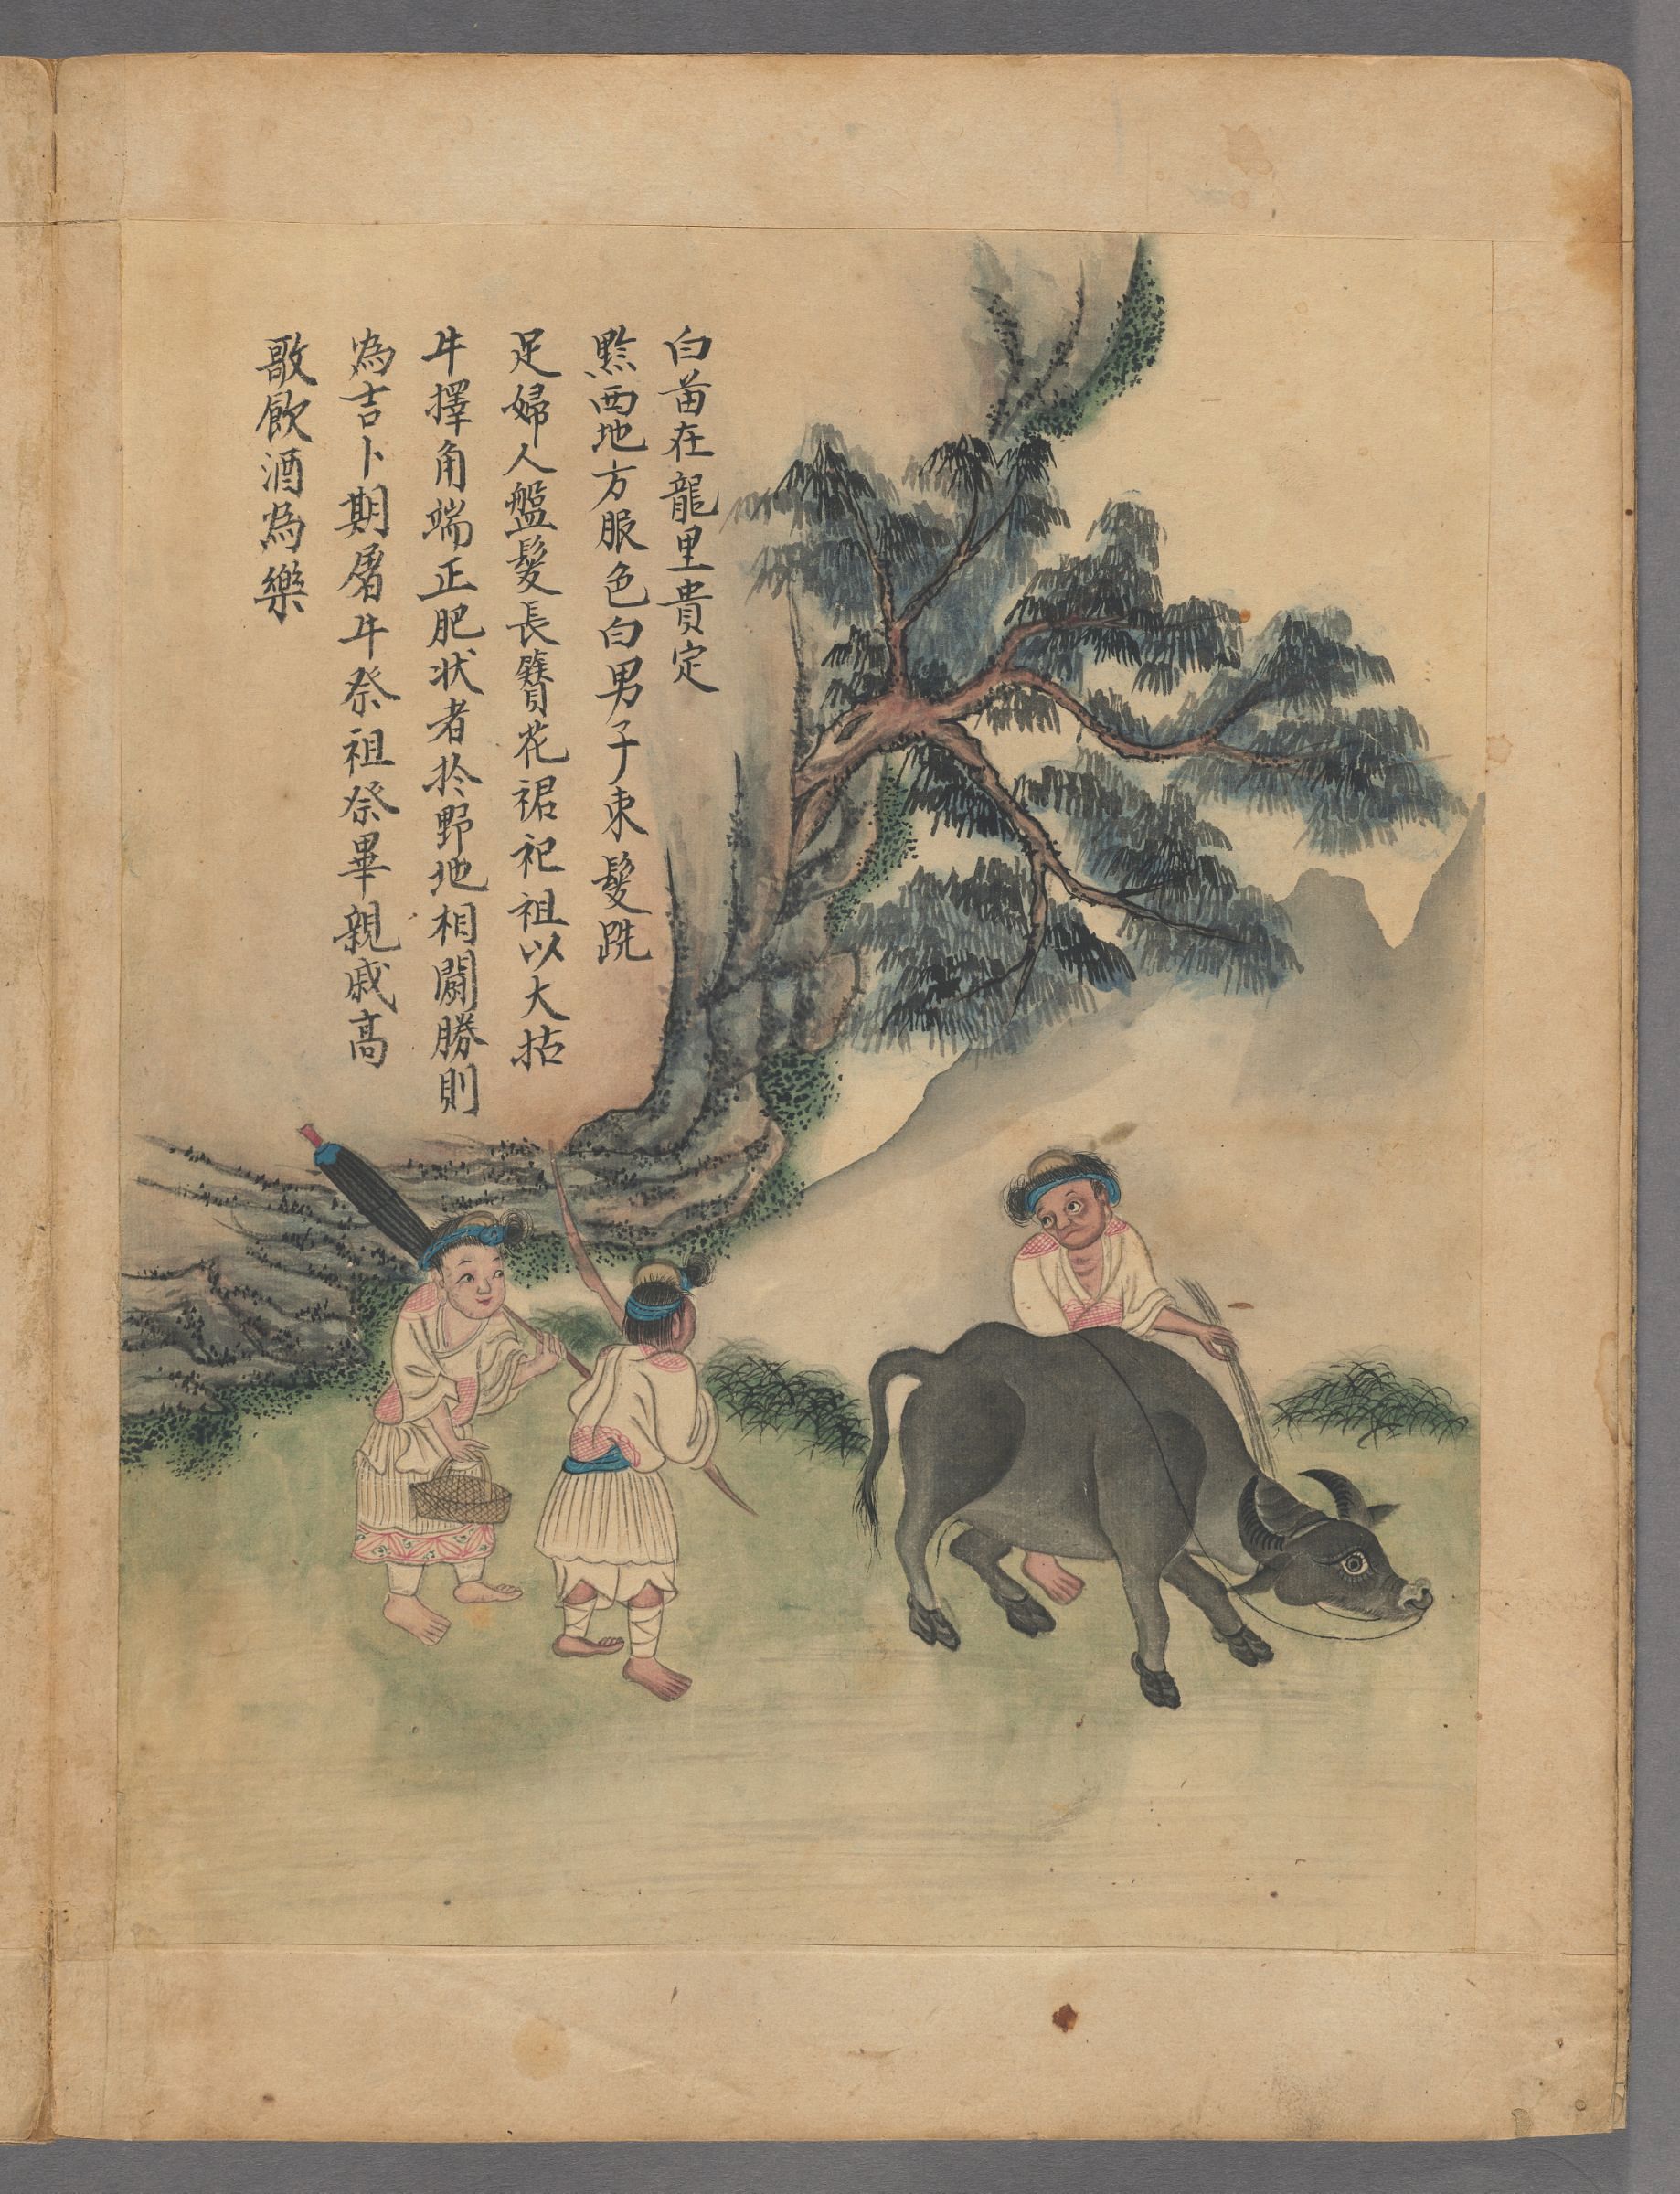 白苗在龍里貴定
黔西地方服色白男子束髮跣
足婦人盤髮長簪花裙祀祖以大牯
牛擇角端正肥状者於野地相鬬勝則
為吉卜期屠牛祭祖祭畢親戚高
歌飲酒為樂